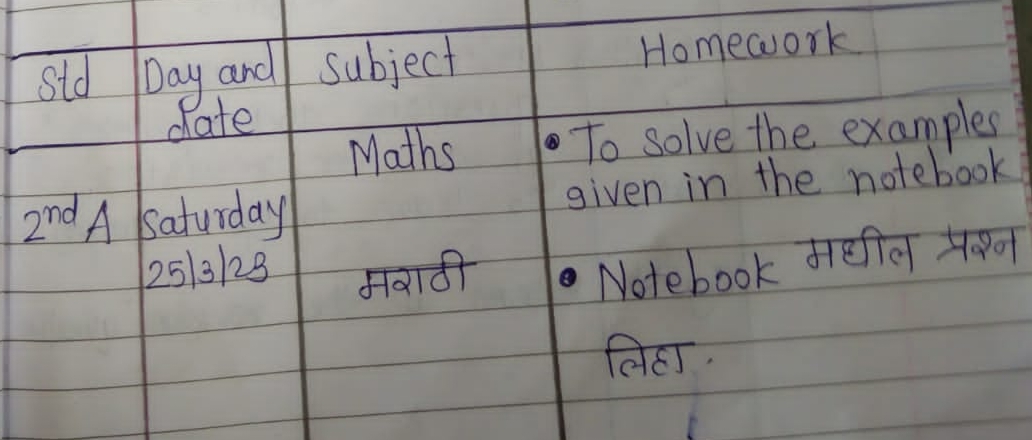 Std Day and Subject Homework
date
Maths • To solve the examples
given in the notebook
2nd A Saturday
25/3/23 मराठी • Notebook मधील प्रश्न
लिहा.